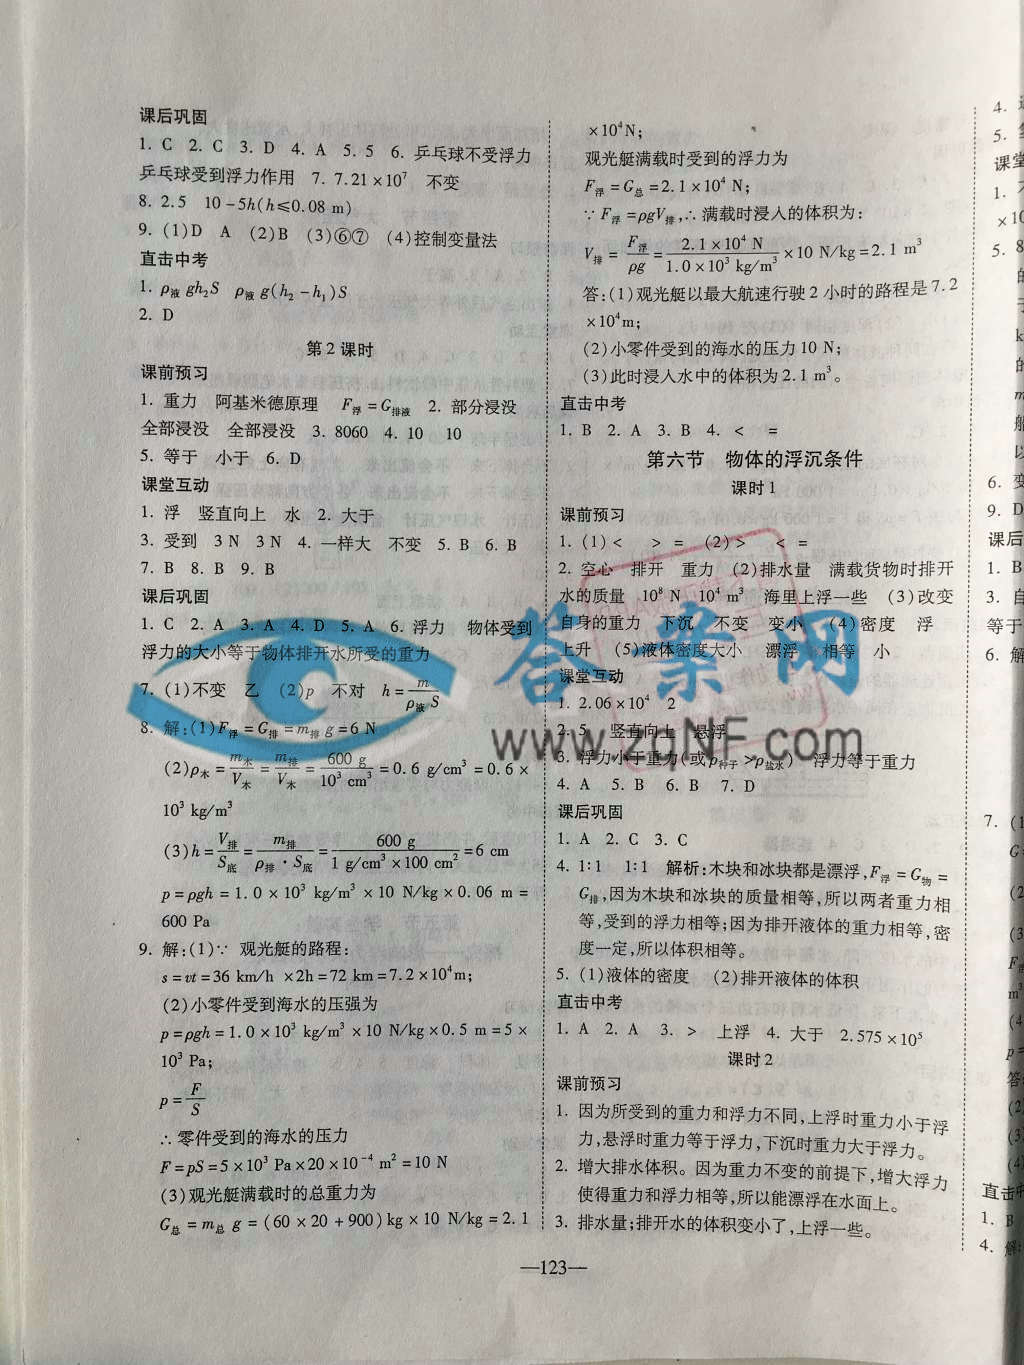 课后巩固
1. C 2. C 3. D 4. A 5. 5 6. 乒乓球不受浮力
乒乓球受到浮力作用 7. 7.21×10⁷ 不变
8. 2.5 10-5h(h≤0.08 m)
9. (1)D A (2)B (3)⑥⑦ (4)控制变量法
直击中考
1. ρ液 gh₂S ρ液 g(h₂-h₁)S
2. D
第 2 课时
课前预习
1. 重力 阿基米德原理 F浮=G排液 2. 部分浸没
全部浸没 全部浸没 3. 8060 4. 10 10
5. 等于 小于 6. D
课堂互动
1. 浮 竖直向上 水 2. 大于
3. 受到 3 N 3 N 4. 一样大 不变 5. B 6. B
7. B 8. B 9. B
课后巩固
1. C 2. A 3. A 4. D 5. A 6. 浮力 物体受到
浮力的大小等于物体排开水所受的重力
7. (1)不变 乙 (2)p 不对 h=m/ρ液S
8. 解:(1)F浮=G排=m排 g=6 N
(2)ρ木=m木/V木=m排/V木=600 g/10³ cm³=0.6 g/cm³=0.6×
10³ kg/m³
(3)h=V排/S底=m排/ρ排·S底=600 g/1 g/cm³×100 cm²=6 cm
p=ρgh=1.0×10³ kg/m³×10 N/kg×0.06 m=
600 Pa
9. 解:(1)∵ 观光艇的路程:
s=vt=36 km/h ×2h=72 km=7.2×10⁴m;
(2)小零件受到海水的压强为
p=ρgh=1.0×10³ kg/m³×10 N/kg×0.5 m=5×
10³ Pa;
p=F/S
∴零件受到的海水的压力
F=pS=5×10³ Pa×20×10⁻⁴ m²=10 N
(3)观光艇满载时的总重力为
G总=m总 g=(60×20+900)kg×10 N/kg=2.1
×10⁴N;
观光艇满载时受到的浮力为
F浮=G总=2.1×10⁴ N;
∵F浮=ρgV排,∴满载时浸入的体积为:
V排=F浮/ρg=2.1×10⁴ N/1.0×10³ kg/m³×10 N/kg=2.1 m³
答:(1)观光艇以最大航速行驶 2 小时的路程是 7.2
×10⁴m;
(2)小零件受到的海水的压力 10 N;
(3)此时浸入水中的体积为 2.1 m³。
直击中考
1. B 2. A 3. B 4. < =
第六节 物体的浮沉条件
课时 1
课前预习
1. (1)< > = (2)> < =
2. 空心 排开 重力 (2)排水量 满载货物时排开
水的质量 10⁸ N 10⁴ m³ 海里上浮一些 (3)改变
自身的重力 下沉 不变 变小 (4)密度 浮
上升 (5)液体密度大小 漂浮 相等 小
课堂互动
1. 2.06×10⁴ 2
2. 5 竖直向上 悬浮
3. 浮力小于重力(或ρ种子>ρ盐水) 浮力等于重力
4. A 5. B 6. B 7. D
课后巩固
1. A 2. C 3. C
4. 1∶1 1∶1 解析:木块和冰块都是漂浮,F浮=G物=
G排,因为木块和冰块的质量相等,所以两者重力相
等,受到的浮力相等;因为排开液体的重力相等,密
度一定,所以体积相等。
5. (1)液体的密度 (2)排开液体的体积
直击中考
1. A 2. A 3. > 上浮 4. 大于 2.575×10⁵
课时 2
课前预习
1. 因为所受到的重力和浮力不同,上浮时重力小于浮
力,悬浮时重力等于浮力,下沉时重力大于浮力。
2. 增大排水体积。因为重力不变的前提下,增大浮力
使得重力和浮力相等,所以能漂浮在水面上。
3. 排水量;排开水的体积变小了,上浮一些。
—123—
答案网
www.zqNF.com